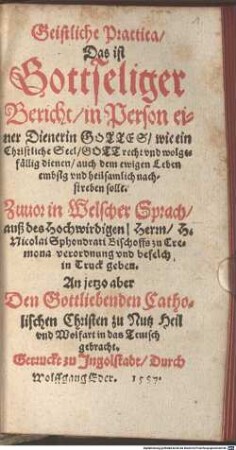 Geistliche Practica/
Das ist
Gottseliger
Bericht/ in Person ei
ner Dienerin GOTTES/ wie ein
Christliche Seel/ GOTT recht vnd wolge-
fällig dienen/ auch dem ewigen Leben
embsig vnd heilsamlich nach-
streben sollt.
Zuuor in Welscher Sprach/
auß des Hochwirdigen/ Herrn/ H.
Nicolai Sphondrati Bischoffs zu Cre-
mona verordnung vnd befelch
in Truck geben.
An jetzo aber
Den Gottliebenden Catho-
lischen Christen zu Nutz Heil
vnd Wolfart in das Teutsch
gebracht.
Getruckt zu Ingolstadt/ Durch
Wolffgang Eder.